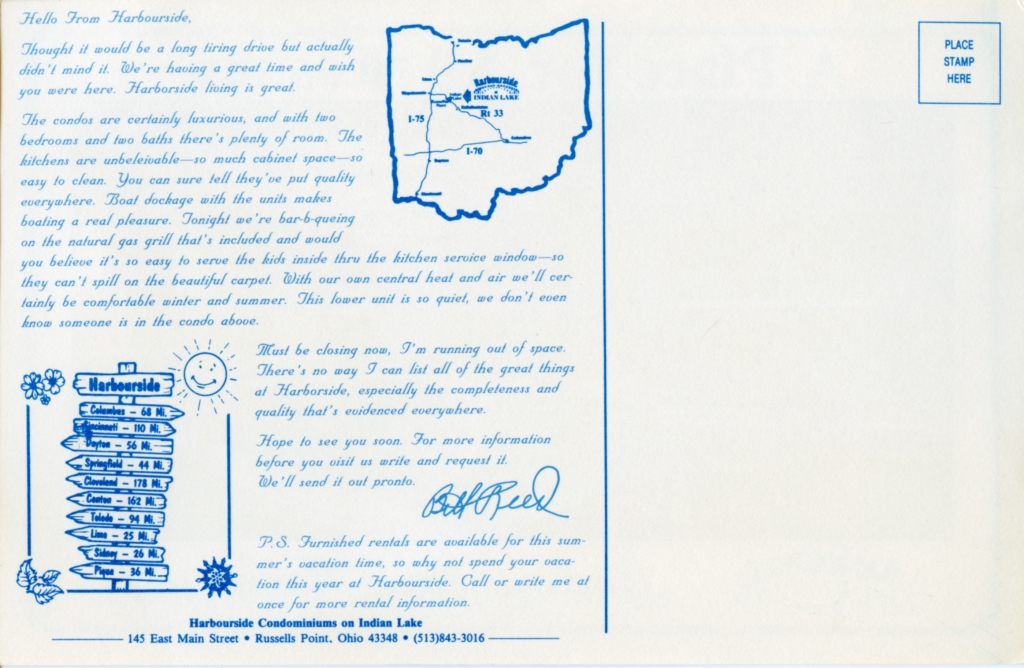 Hello From Harbourside,
Thought it would be a long tiring drive but actually
didn't mind it. We're having a great time and wish
you were here. Harborside living is great.
The condos are certainly luxurious, and with two
bedrooms and two baths there's plenty of room. The
kitchens are unbeleivable—so much cabinet space—so
easy to clean. You can sure tell they've put quality
everywhere. Boat dockage with the units makes
boating a real pleasure. Tonight we're bar-b-queing
on the natural gas grill that's included and would
you believe it's so easy to serve the kids inside thru the kitchen service window—so
they can't spill on the beautiful carpet. With our own central heat and air we'll cer-
tainly be comfortable winter and summer. This lower unit is so quiet, we don't even
know someone is in the condo above.
Harbourside
INDIAN LAKE
I-75
Rt 33
I-70
PLACE
STAMP
HERE
Harbourside
Columbus – 68 Mi.
Cincinnati – 110 Mi.
Dayton – 56 Mi.
Springfield – 44 Mi.
Cleveland – 178 Mi.
Canton – 162 Mi.
Toledo – 94 Mi.
Lima – 25 Mi.
Sidney – 26 Mi.
Piqua – 36 Mi.
Must be closing now, I'm running out of space.
There's no way I can list all of the great things
at Harborside, especially the completeness and
quality that's evidenced everywhere.
Hope to see you soon. For more information
before you visit us write and request it.
We'll send it out pronto.
Bill Reed
P.S. Furnished rentals are available for this sum-
mer's vacation time, so why not spend your vaca-
tion this year at Harbourside. Call or write me at
once for more rental information.
Harbourside Condominiums on Indian Lake
145 East Main Street • Russells Point, Ohio 43348 • (513)843-3016